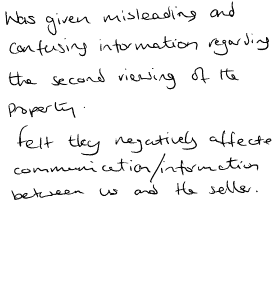 Was given misleading and
confusing information regarding
the second viewing of the
property.
Felt they negatively affecte
communication/information
between us and the seller.